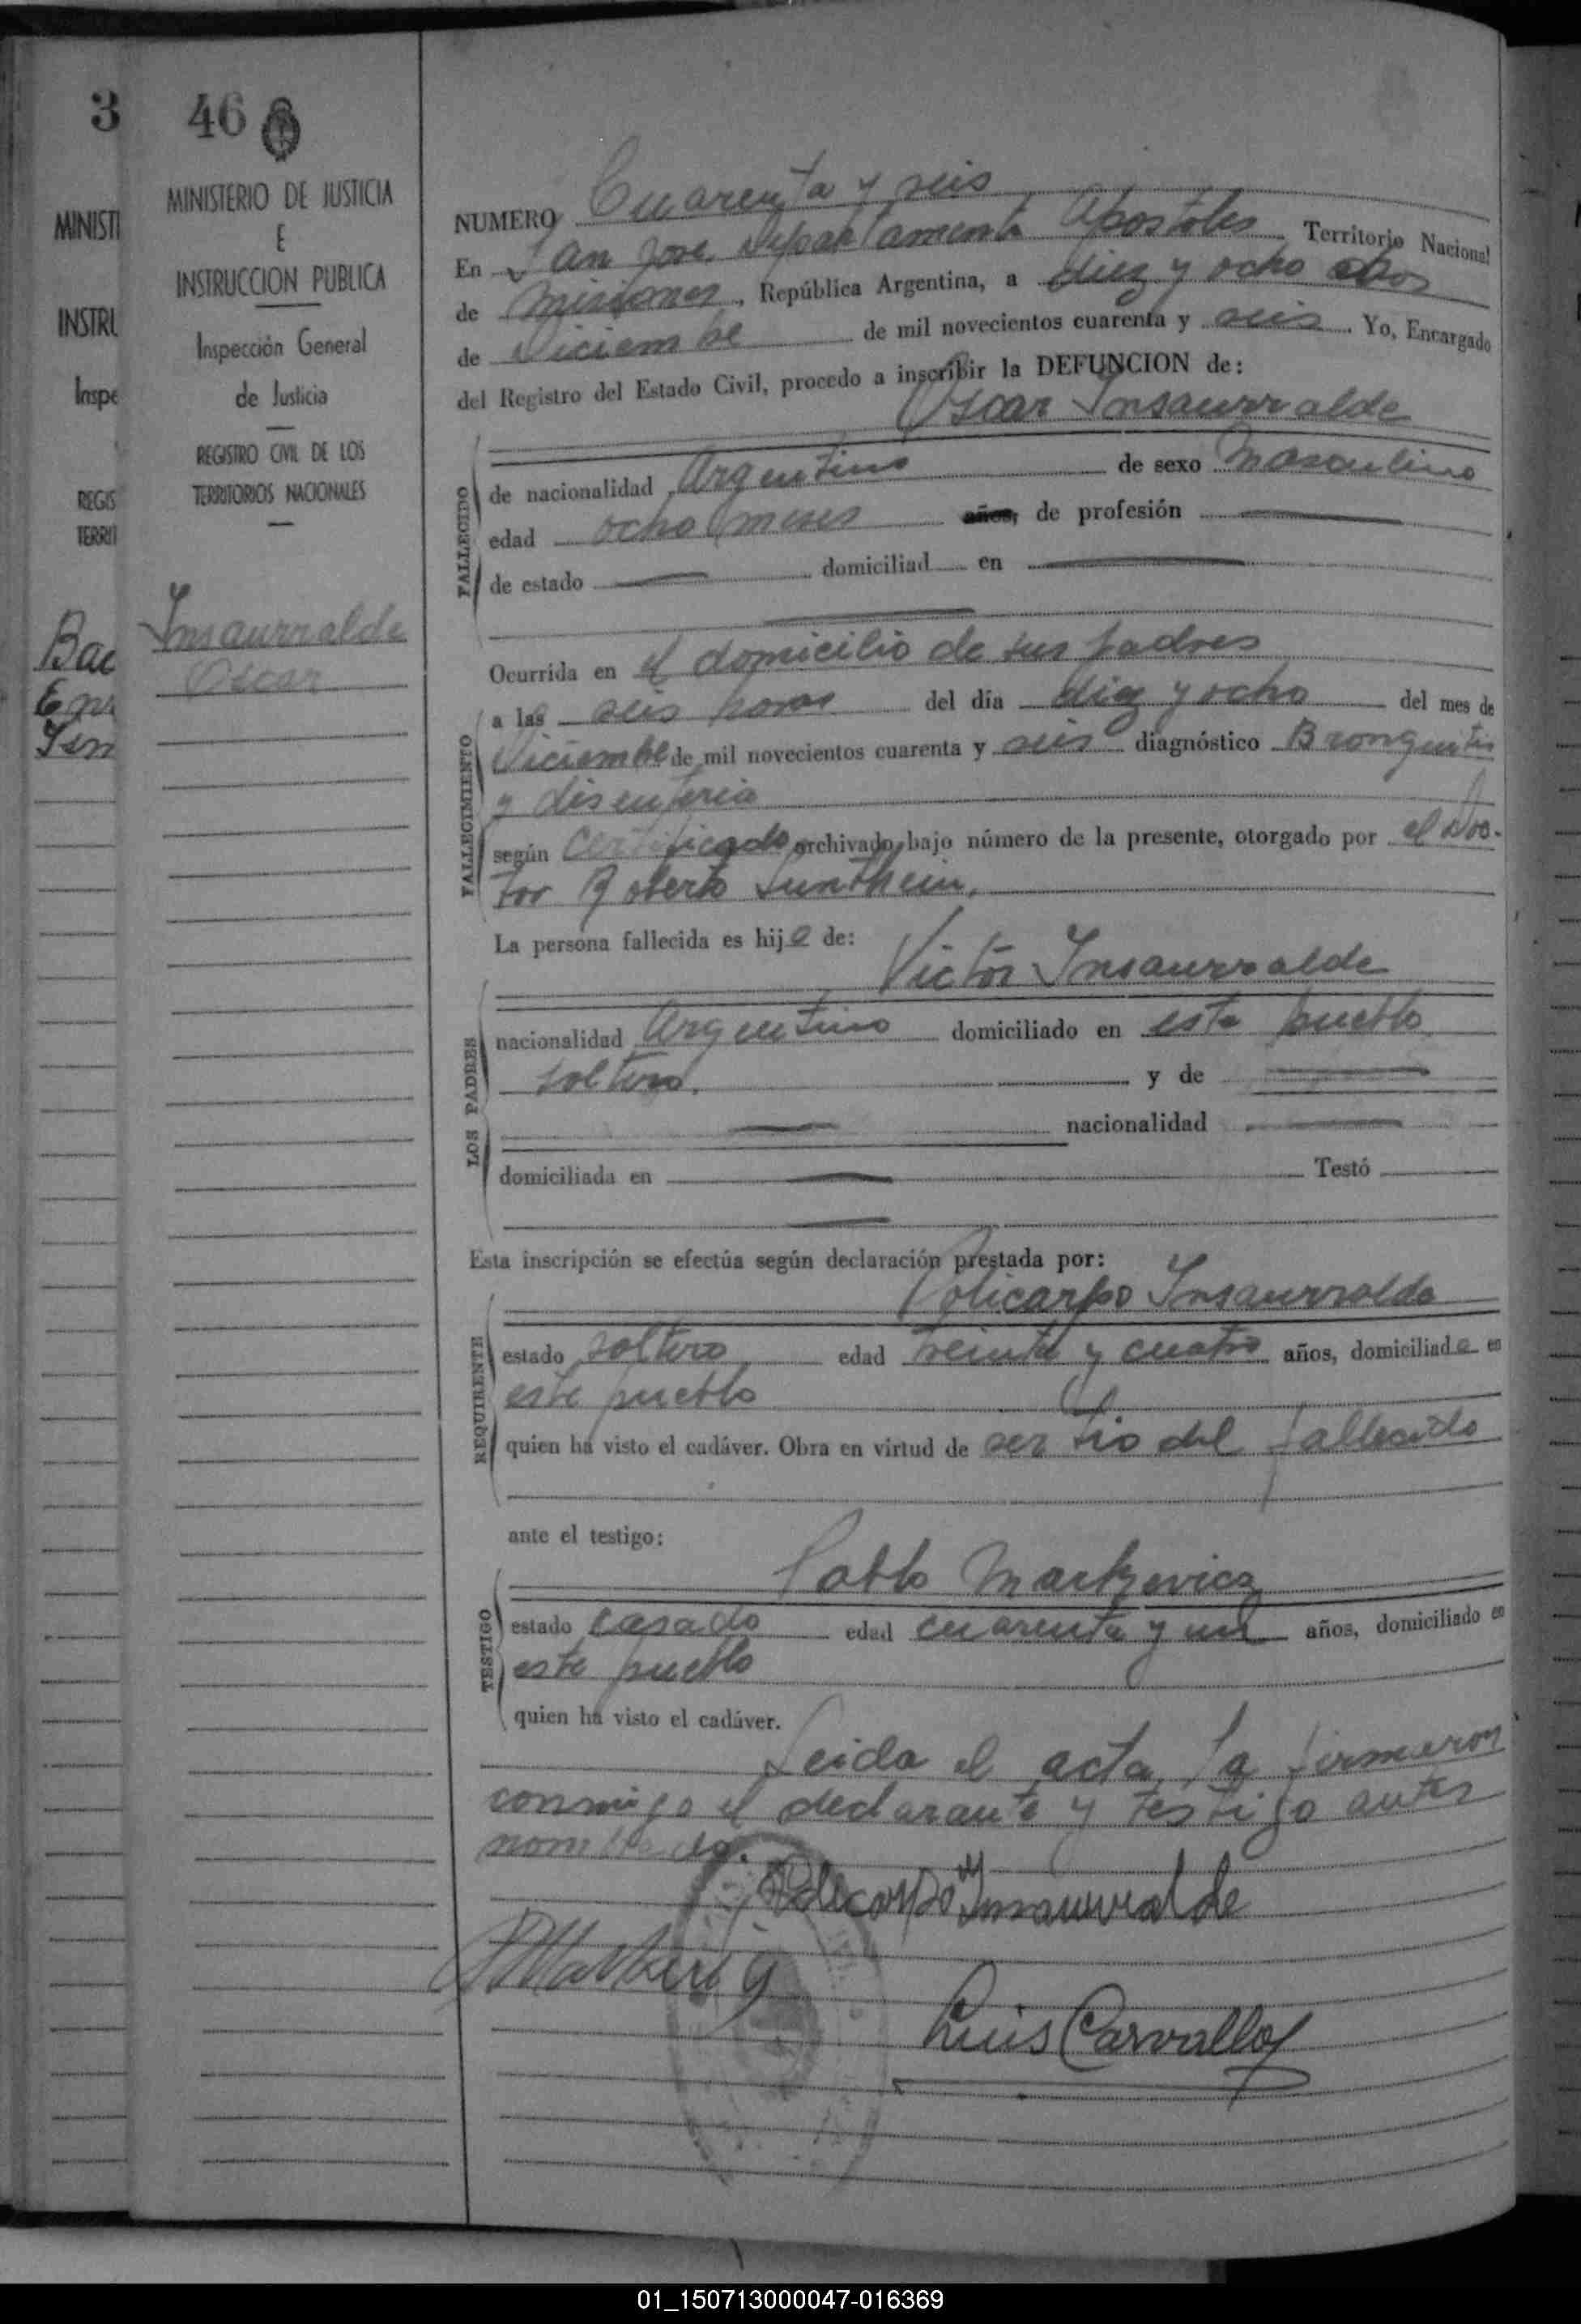 3
MINISTI
INSTRU
Inspe
REGIS
TERRIT
Bac
46
MINISTERIO DE JUSTICIA
E
INSTRUCCION PUBLICA
Inspección General
de Justicia
REGISTRO CIVIL DE LOS
TERRITORIOS NACIONALES
Insaurralde
Oscar
NUMERO Cuarenta y seis
En San José, Departamento Apostoles Territorio Nacional
de Misiones, República Argentina, a diez y ocho dias
de Diciembre de mil novecientos cuarenta y seis. Yo, Encargado
del Registro del Estado Civil, procedo a inscribir la DEFUNCION de:
Oscar Insaurralde
FALLECIDO
de nacionalidad Argentino de sexo Masculino
edad ocho meses años, de profesión
de estado domiciliad en
FALLECIMIENTO
Ocurrida en el domicilio de sus padres
a las seis horas del día diez y ocho del mes de
Diciembre de mil novecientos cuarenta y seis diagnóstico Bronquitis
y disenteria
según certificado archivado bajo número de la presente, otorgado por el Doc-
tor Roberto Sunthein.
La persona fallecida es hijo de:
LOS PADRES
Victor Insaurralde
nacionalidad Argentino domiciliado en este pueblo
soltero. y de
nacionalidad
domiciliada en Testó
Esta inscripción se efectúa según declaración prestada por:
REQUIRENTE
Policarpo Insaurralde
estado soltero edad treinta y cuatro años, domiciliado en
este pueblo
quien ha visto el cadáver. Obra en virtud de ser tio del fallecido
ante el testigo:
TESTIGO
Pablo Markevicz
estado casado edad cuarenta y un años, domiciliado en
este pueblo
quien ha visto el cadáver.
Leida el acta, la firmaron
conmigo el declarante y testigo antes
nombrado.
Policarpo Insaurralde
Luis Carvallo
01_150713000047-016369